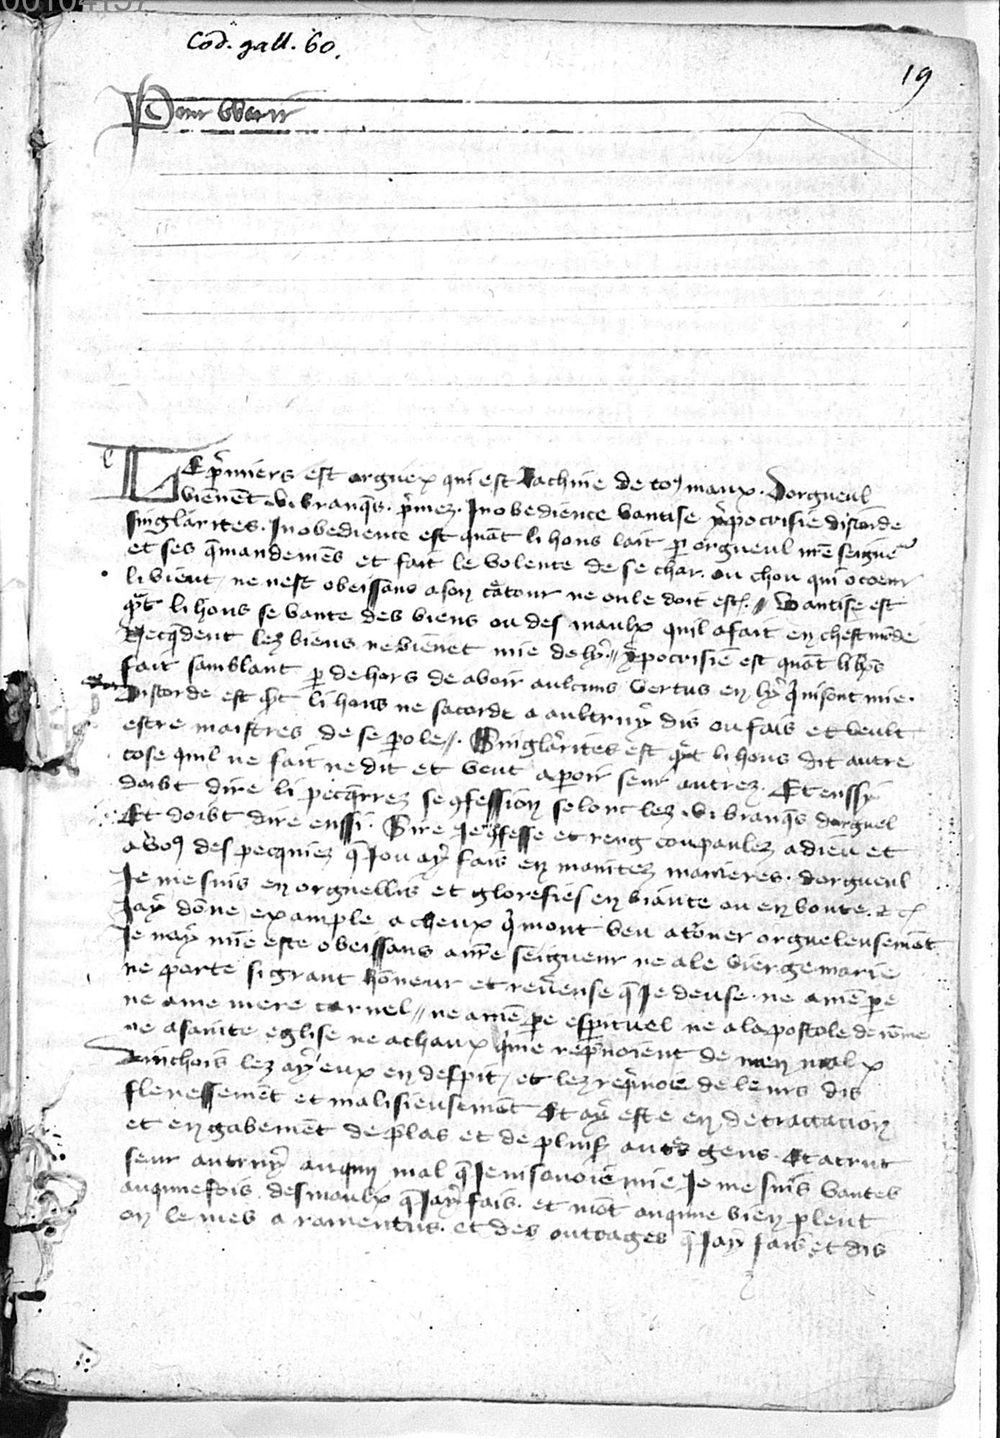 00104157
Cod. gall. 60.
19
Pour
LE p̄miers est orguex qui est Rachine de to9 maux. Dorgueul
vienēt .vi. branq̄s. p̄mez. Inobedience vantise ypocrisie discorde
singlarites. Inobedience est quāt li hons lait p orgueul nr̄e seignr
et ses q̄mandemēs et fait le volente de se char. ou chou qui
li vient / ne nest obeissans a son c̄atour ne on le doit est̄. // Vantise est
q̄t li hons se vante des biens ou des maulx quil a fait en chest mōde
lez biens ne vienēt mie de ly. // ypocrisie est quāt li hōs
fait samblant p de hors de avoir aulcuns vertus en ly q̄ ni sont mie.
Discorde est q̄t li hons ne sacorde a aultruy dis ou fais et veult
estre maistres de se pole //. Singlarites est q̄t li hons dit autre
cose quil ne fait ne dit et veut apoir seur autrez. Et enssy
doibt dire li pecq̄rrez se 9fession selonc lez .vi. branq̄s dorguel
Et doibt dire enssi. Sire Je 9fesse et reng coupaulez a dieu et
a vo9 des pecquiez q̄ Jou ay fais en maintez manieres. dorgueul
Je me suis en orguellis et glorefies en biaute ou en bonte.
Jay dōne example a cheux q̄ mont veu atōner orgueleusemēt
Je nay mīe este obeissans a nr̄e seigneur ne a le vierge marie
ne porte si grant hōneur et reūense q̄ Je deuse. ne a mē pe
ne a me mere carnel // ne a mē pe esp̄ituel ne a lapostole de rōme
ne a sainte eglise ne a chaux q̄ me rep̄noient de men mal
Ainchois lez ay eux en despit / et lez rep̄noie de leurs dis
felenessemēt et malisieusemēt Et ay este en detractacion
et en gabemēt de p̄las et de plui͛s aut̄s gens. Et
seur autruy auqun mal q̄ Je ni savoie mie Je me suis vantes
auqune fois des maulx q̄ Jay fais. et mōt auqune bien pleut
on le mes a ramentus. et des outrages q̄ Jay fais et dis